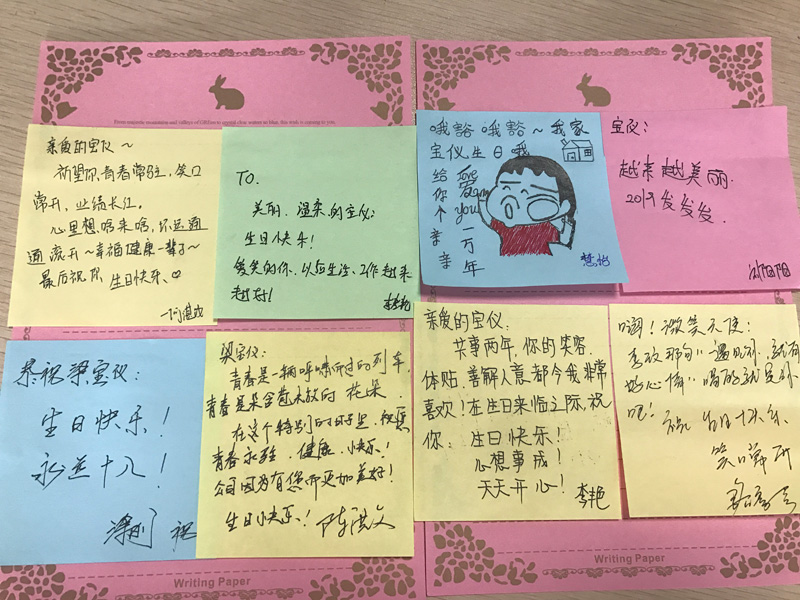 From majestic mountains and valleys of
亲爱的宝仪~
祈望你青春常驻,笑口
常开,业绩长红。
心里想啥来啥,
通流开~幸福健康一辈子~
最后祝你,生日快乐、♡
TO.
美丽、温柔的宝仪:
生日快乐!
爱笑的你,以后生活、工作越来
越好!
李艳
哦豁哦豁~我家
宝仪生日哦
给你个亲亲
爱你一万年
love you
慧怡
宝仪:
越来越美丽.
2019发发发.
恭祝梁宝仪:
生日快乐!
永远十八!
祝
梁宝仪:
青春是一辆呼啸而过的列车,
青春是朵含苞未放的花朵
在这个特别的日子里,祝愿
青春永驻、健康、快乐!
公司因为有您而更加美好!
生日快乐!
陈洪文
亲爱的宝仪:
共事两年,你的笑容、
体贴、善解人意都令我非常
喜欢!在生日来临之际,祝
你:生日快乐!
心想事成!
天天开心!
李艳
嗨!微笑天使:
喜欢那句“遇见你,就有
好心情”唱的就是你
吧!
祝 生日快乐
笑口常开
Writing Paper
Writing Paper